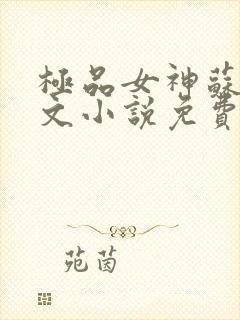 極品女神蘇
文小說免費
苑茵